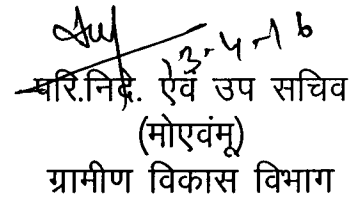 13-4-16
परि.निदे. एवं उप सचिव
(मोएवंमू)
ग्रामीण विकास विभाग